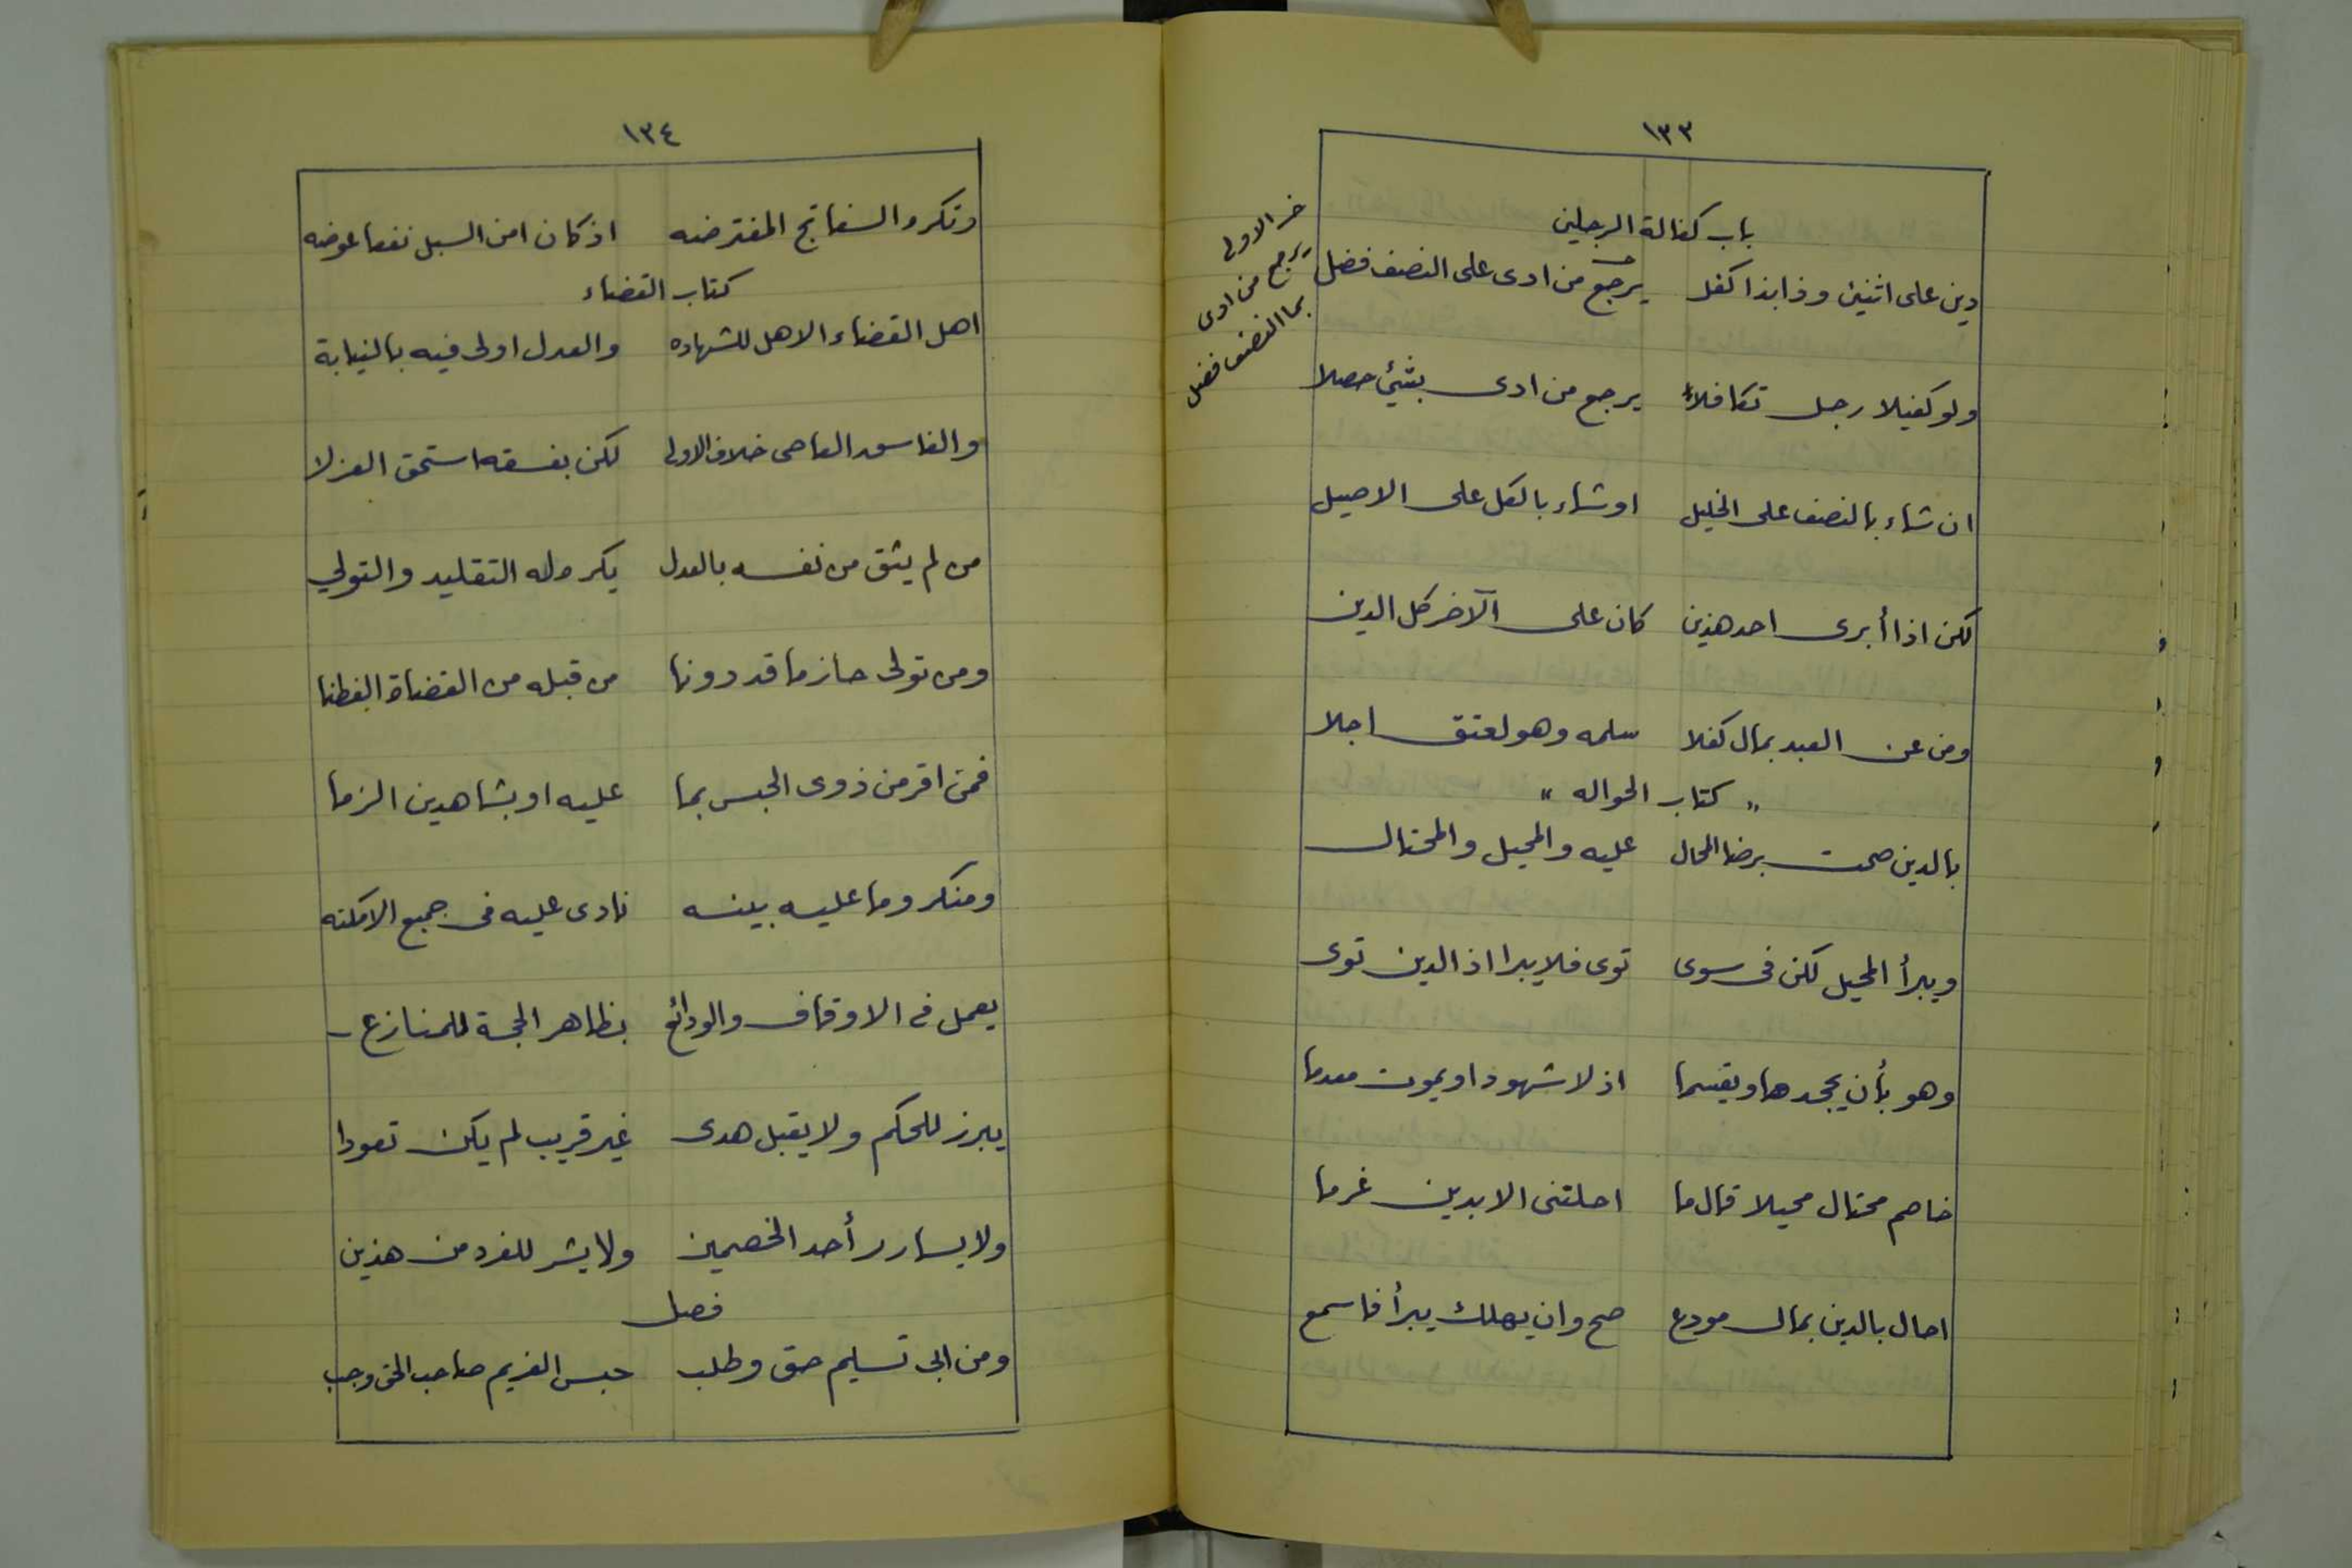 ١٣٣
باب كفالة الرجلين
دين على اثنين وذا بذا كفل يرجع من ادى على النصف فضل
خـ الاولى
يرجع من ادى
بما النصف فضل
ولو كفيلا رجل تكافلا يرجع من ادى بشيئ حصلا
ان شاء بالنصف على الخليل او شاء بالكل على الاصيل
لكن اذا أبرى احد هذين كان على الآخر كل الدين
ومن عن العبد بمال كفلا سلمه وهو لعتق اجلا
" كتاب الحواله "
بالدين صحت برضا المحال عليه والمحيل والمحتال
ويبرأ المحيل لكن فى سوى توى فلا يبرا اذ الدين توى
وهو بأن يجحدها ويقسما اذ لا شهود او يموت معدما
خاصم محتال محيلا قال ما احلتنى الا بدين غرما
احال بالدين بمال مودع صح وان يهلك يبرأ فاسمع
١٣٤
وتكره السفاتج المفترضه اذ كان امن السبل نفعا عوضه
كتاب القضاء
اهل القضاء الاهل للشهاده والعدل اولى فيه بالنيابة
والفاسق العاصى خلاف الاولى لكن بفسقه استحق العزلا
من لم يثق من نفسه بالعدل يكره له التقليد والتولي
ومن تولى حاز ما قد دونا من قبله من القضاة الفطنا
فمن اقر من ذوى الحبس بما عليه او بشاهدين الزما
ومنكر وما عليه بينه نادى عليه فى جميع الامكنه
يعمل فى الاوقاف والودائع بظاهر الحجة للمنازع
يبرز للحكم ولا يقبل هدى غير قريب لم يكن تعودا
ولا يسارر أحد الخصمين ولا يشر للفرد من هذين
فصل
ومن ابى تسليم حق وطلب حبس الغريم صاحب الحق وجب